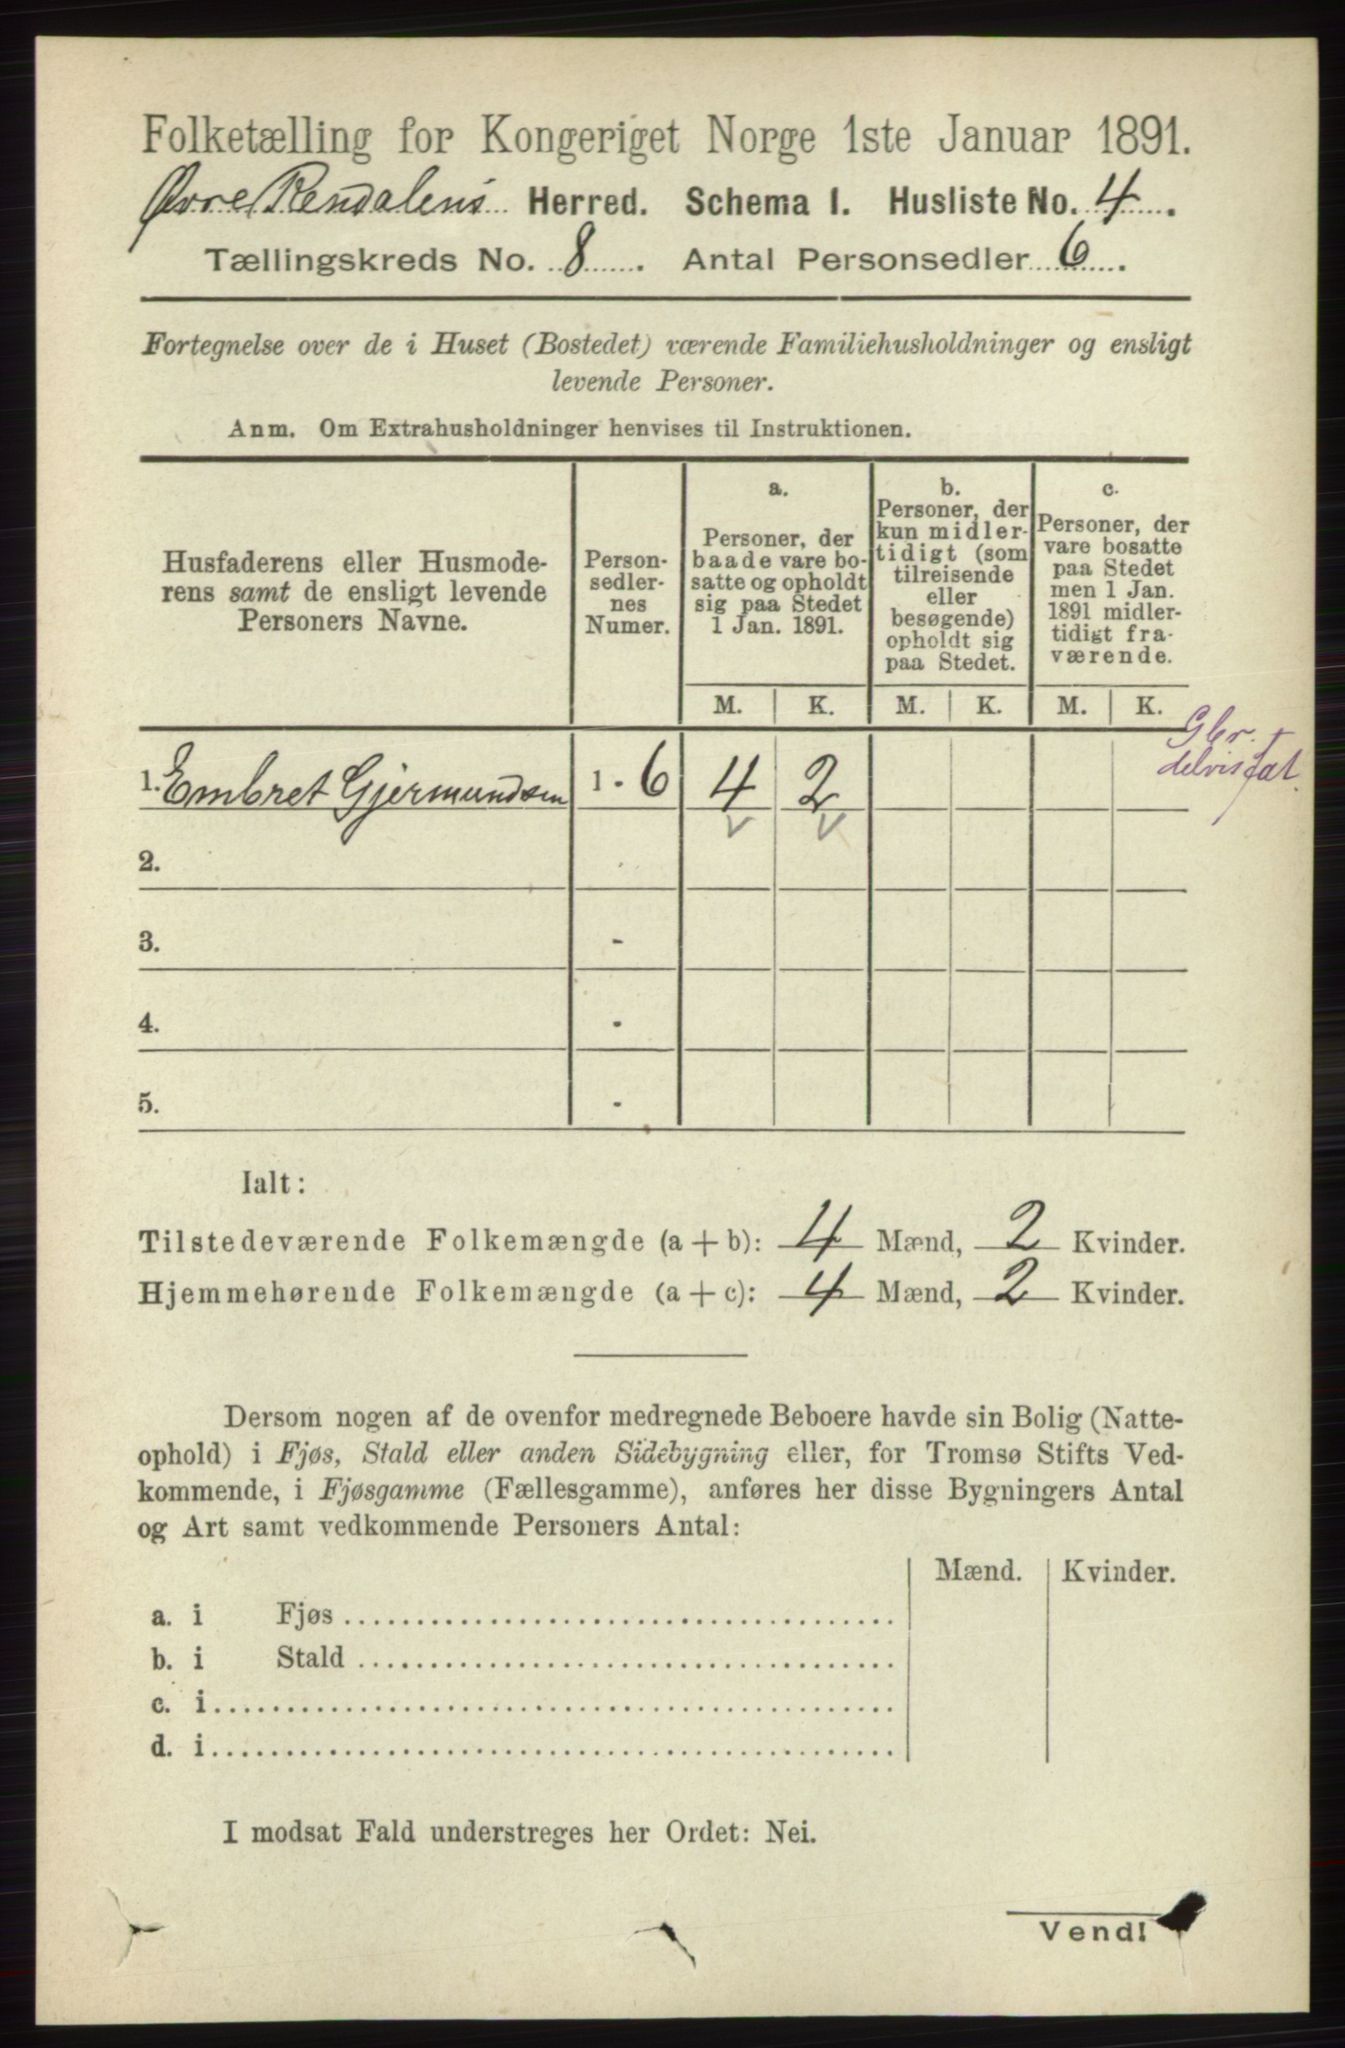 Folketælling for Kongeriget Norge 1ste Januar 1891.
Øvre Rendalens Herred. Schema 1. Husliste No. 4.
Tællingskreds No. 8. Antal Personsedler 6.
Fortegnelse over de i Huset (Bostedet) værende Familiehusholdninger og ensligt
levende Personer.
Anm. Om Extrahusholdninger henvises til Instruktionen.
Husfaderens eller Husmode-
rens samt de ensligt levende
Personers Navne.
Person-
sedler-
nes
Numer.
a.
Personer, der
baade vare bo-
satte og opholdt
sig paa Stedet
1 Jan. 1891.
b.
Personer, der
kun midler-
tidigt (som
tilreisende
eller
besøgende)
opholdt sig
paa Stedet.
c.
Personer, der
vare bosatte
paa Stedet
men 1 Jan.
1891 midler-
tidigt fra-
værende.
M. K. M. K. M. K.
Gbr. +
delvis fat.
1. Embret Gjermundsen 1 - 6 4 2
2. -
3. -
4. -
5. -
Ialt:
Tilstedeværende Folkemængde (a + b): 4 Mænd, 2 Kvinder.
Hjemmehørende Folkemængde (a + c): 4 Mænd, 2 Kvinder.
Dersom nogen af de ovenfor medregnede Beboere havde sin Bolig (Natte-
ophold) i Fjøs, Stald eller anden Sidebygning eller, for Tromsø Stifts Ved-
kommende, i Fjøsgamme (Fællesgamme), anføres her disse Bygningers Antal
og Art samt vedkommende Personers Antal:
Mænd. Kvinder.
a. i Fjøs
b. i Stald
c. i
d. i
I modsat Fald understreges her Ordet: Nei.
Vend!